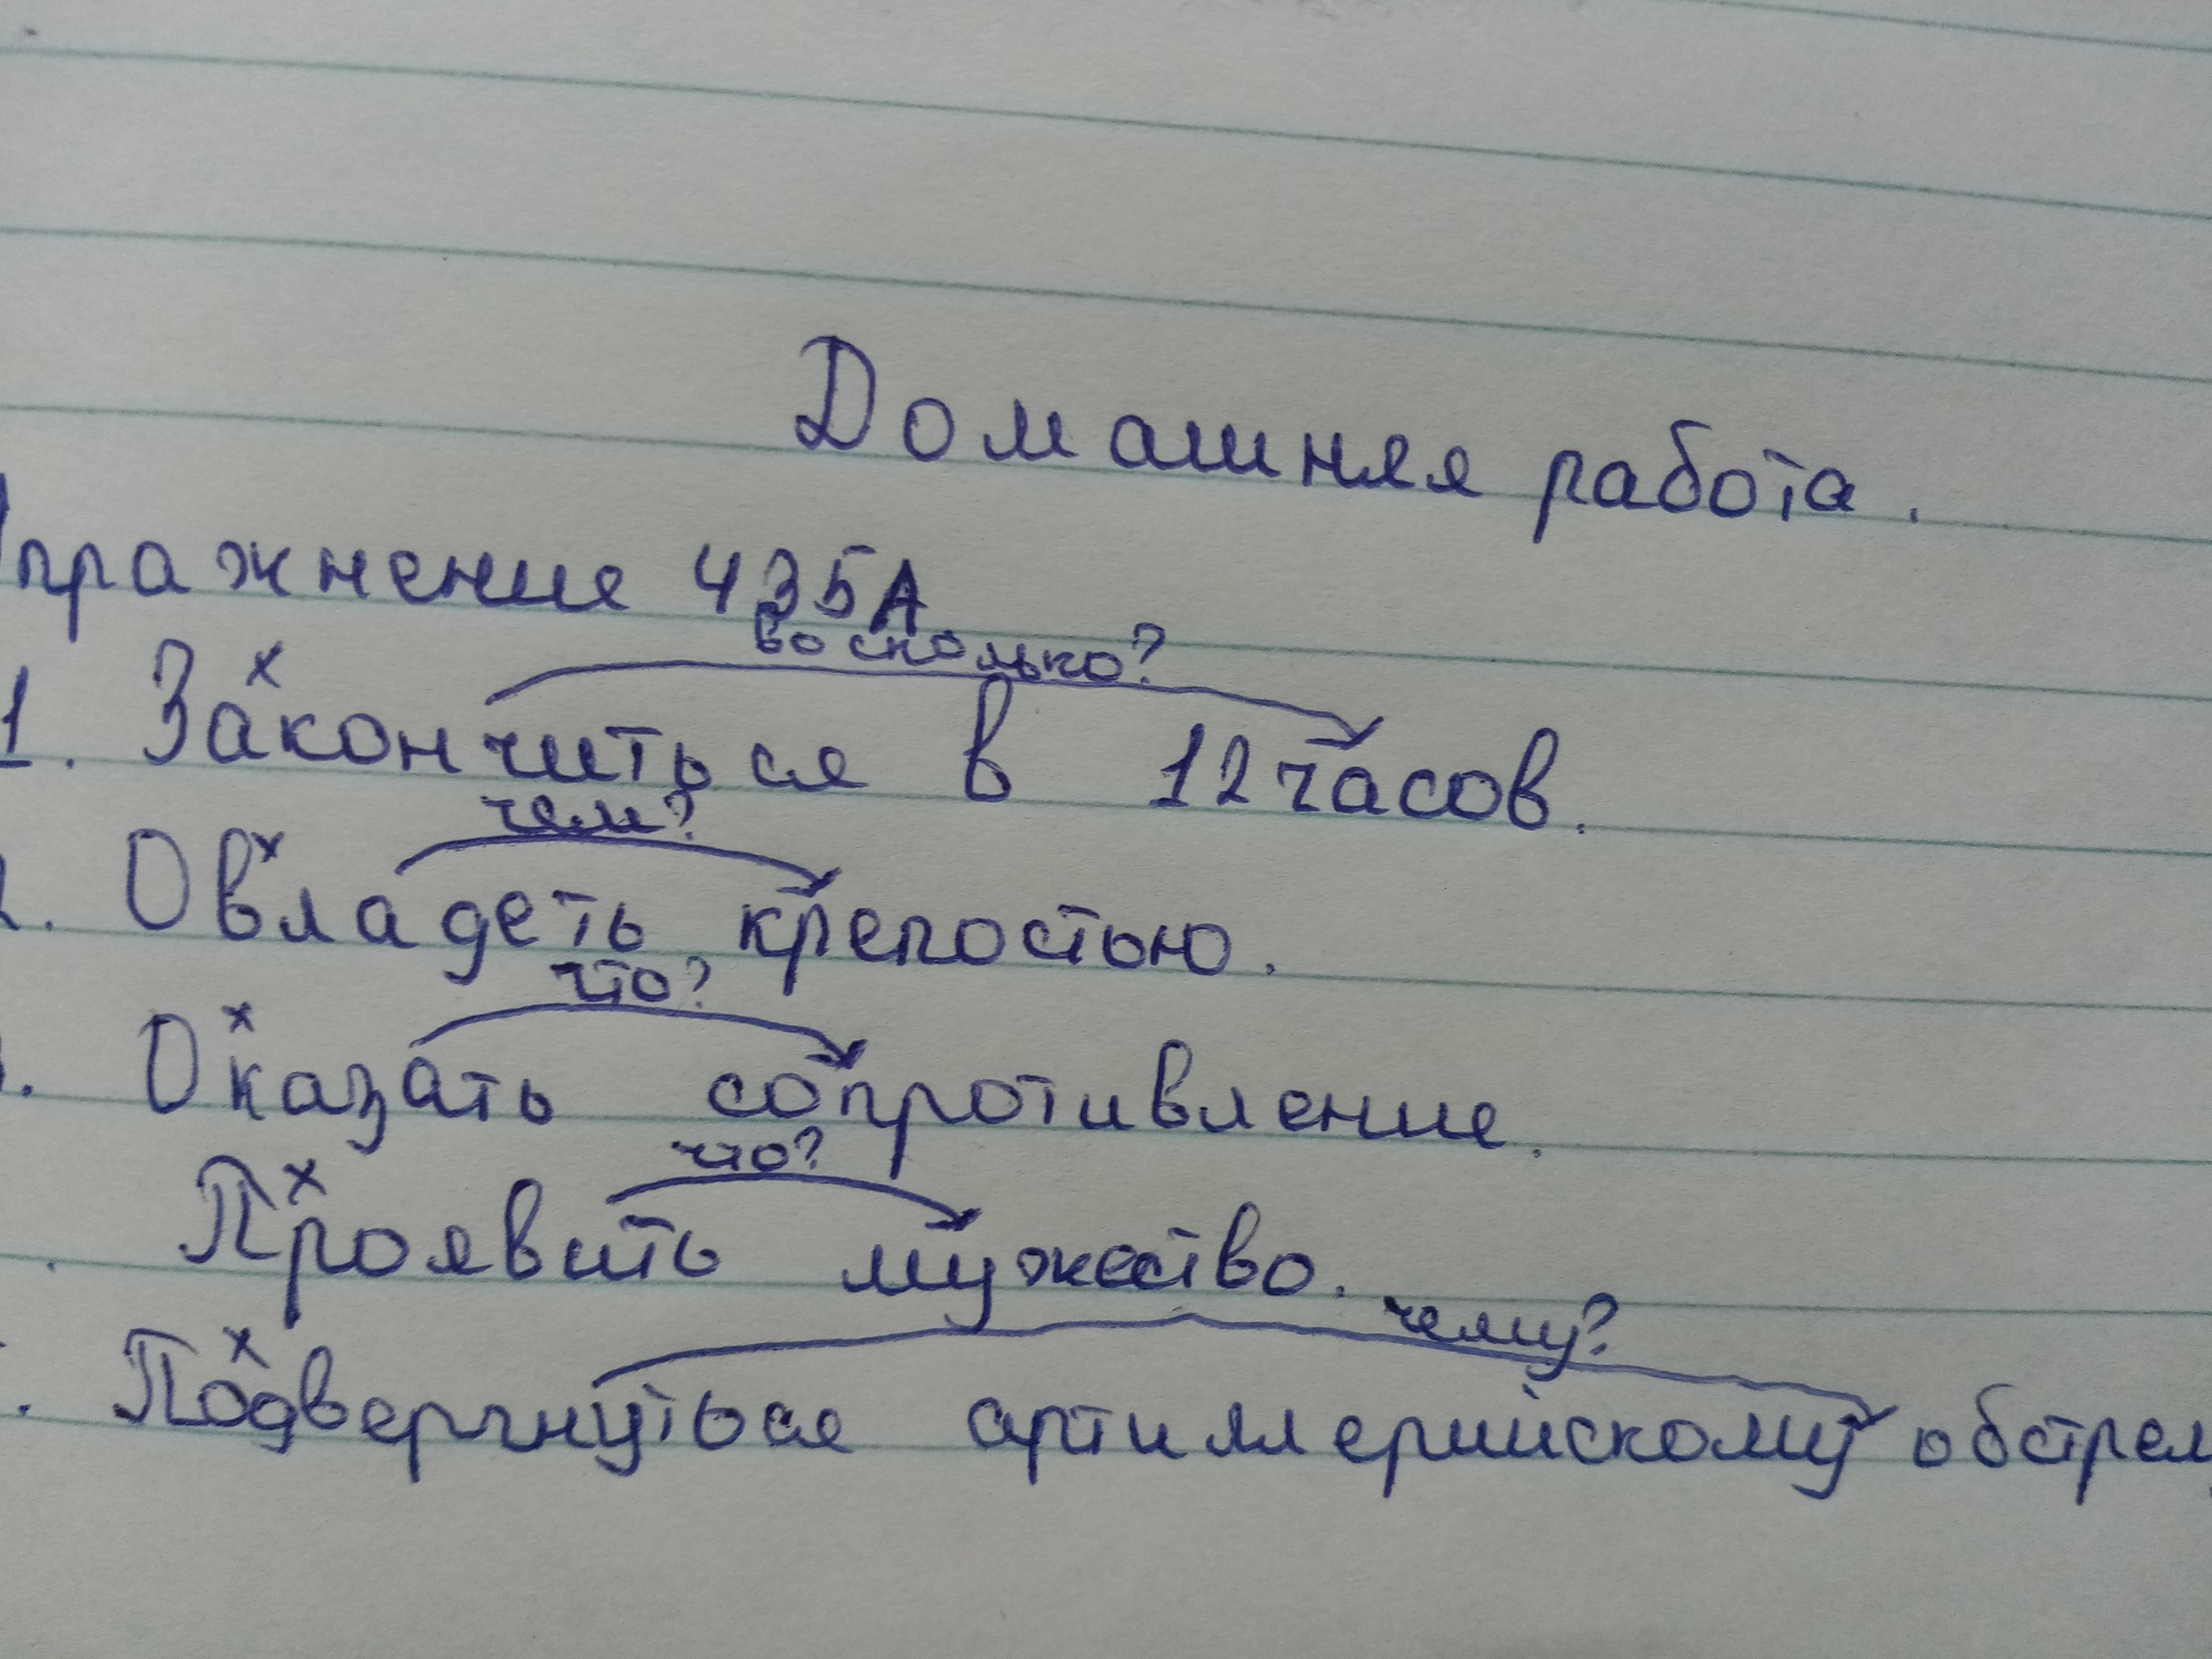 Домашняя работа.
Упражнение 435А
во сколько?
х
1. Закончиться в 12 часов.
чем?
х
2. Овладеть крепостью.
что?
х
. Оказать сопротивление.
что?
х
. Проявить мужество.
чему?
х
. Подвергнуться артиллерийскому обстрелу